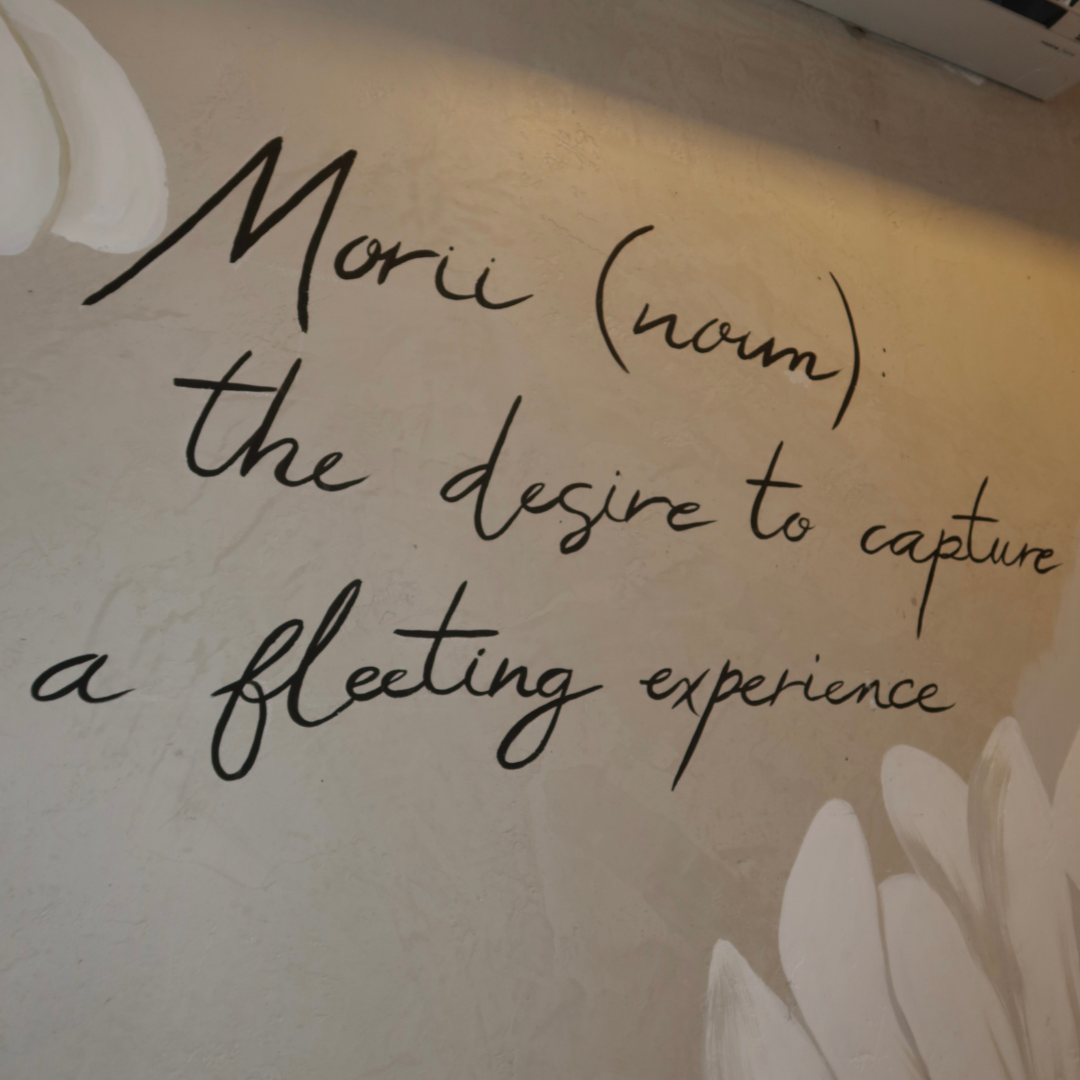 Morii (noun):
the desire to capture
a fleeting experience